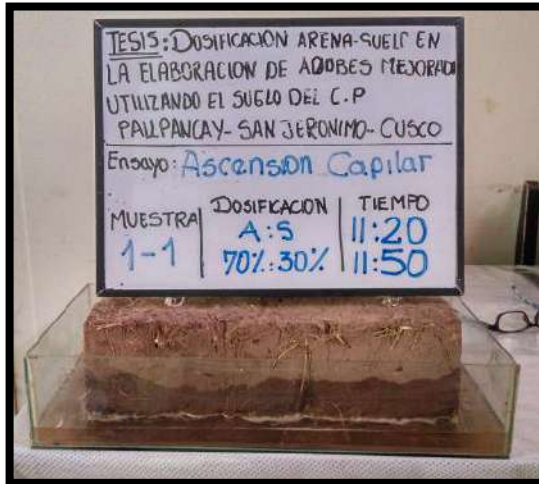 TESIS: DOSIFICACION ARENA-SUELO EN
LA ELABORACION DE ADOBES MEJORADO
UTILIZANDO EL SUELO DEL C.P
PALLPANCAY - SAN JERONIMO - CUSCO
Ensayo: Ascension Capilar
MUESTRA
1-1
DOSIFICACION
A:S
70%:30%
TIEMPO
11:20
11:50